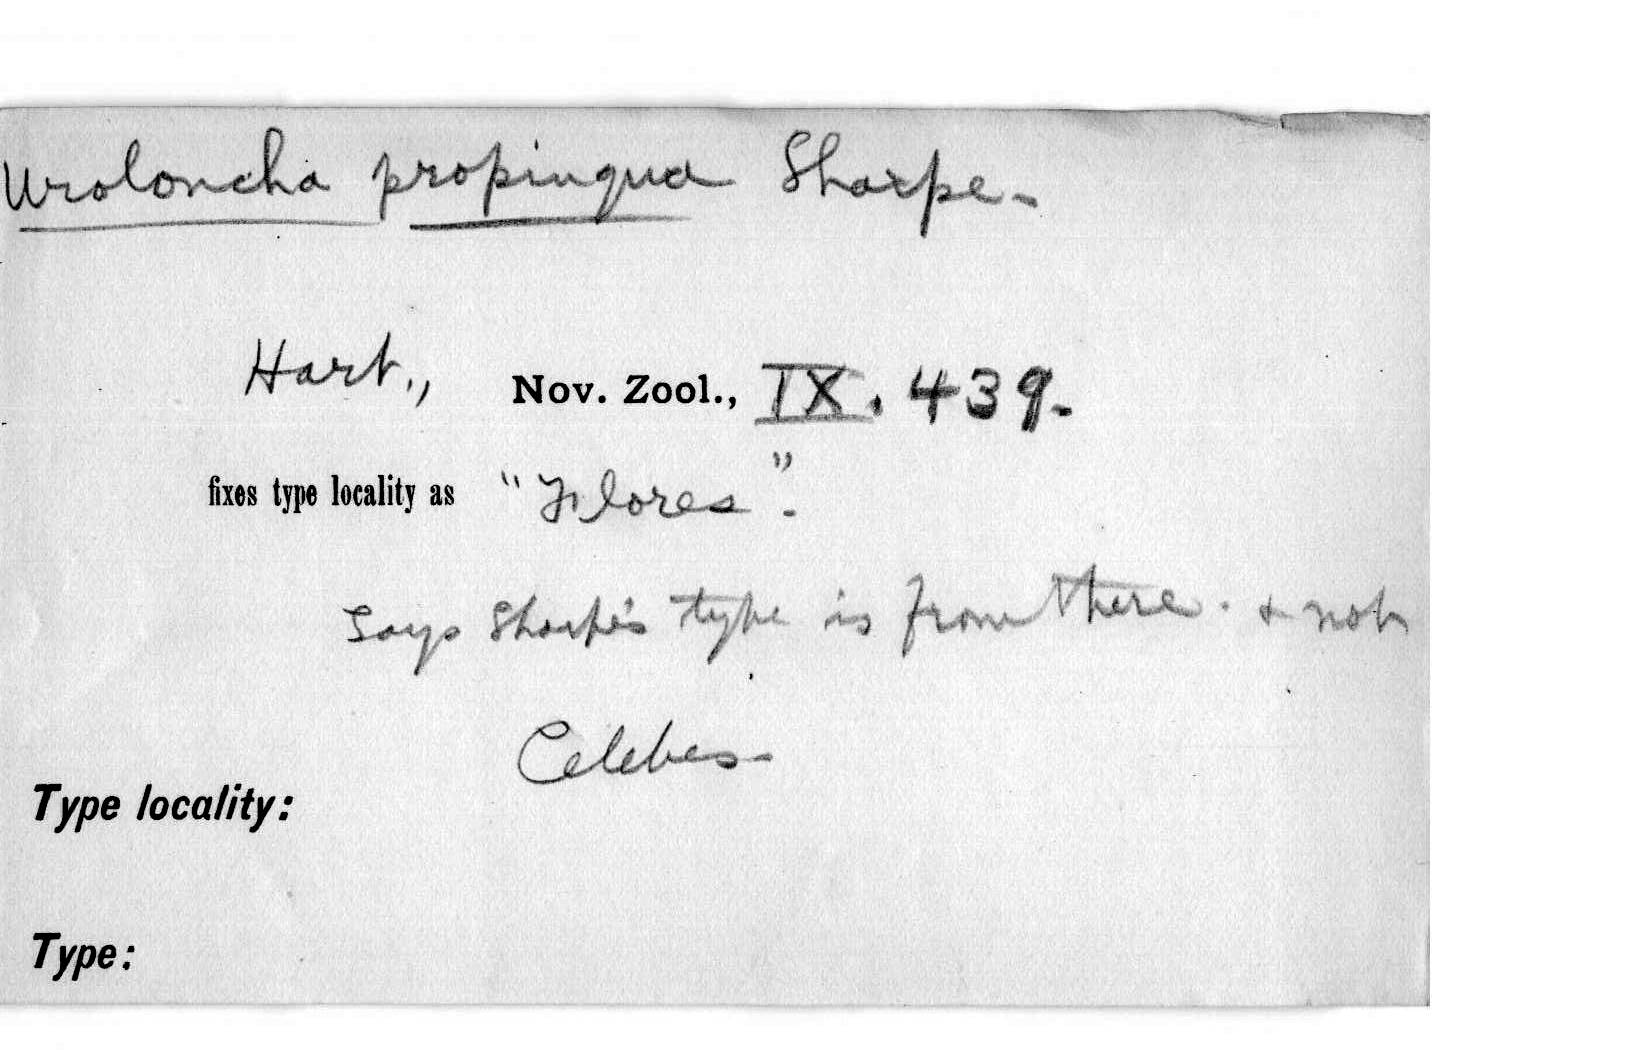 Uroloncha propinqua Sharpe-
Hart., Nov. Zool., IX. 439-
fixes type locality as "Flores".
Says Sharpe's type is from there. & not
Celebes-
Type locality:
Type: